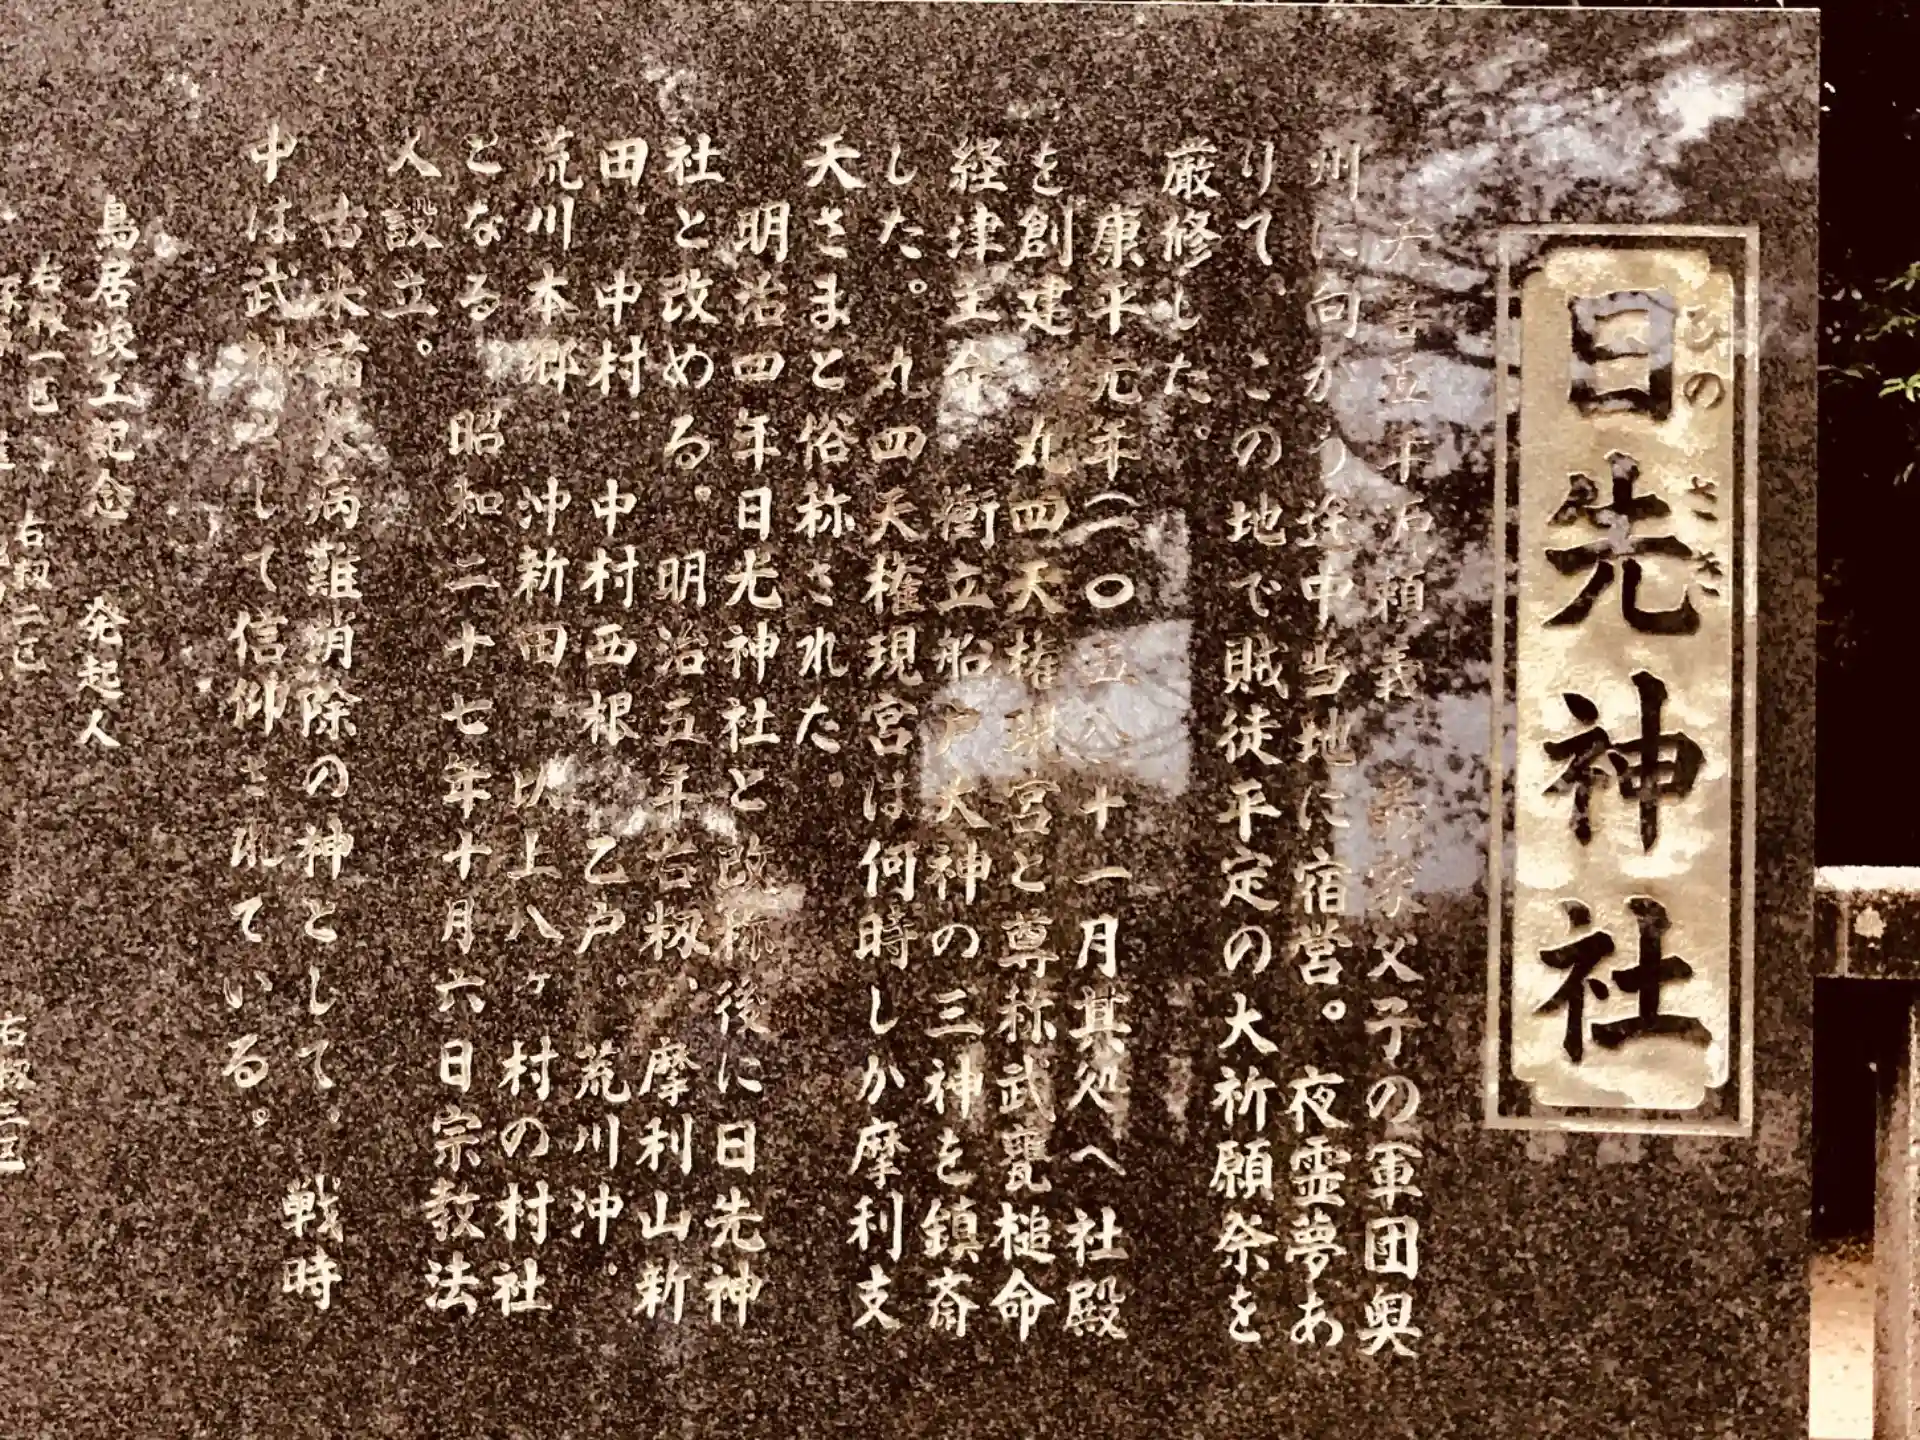 日先神社
ひのさき
天喜五年源頼義 義家父子の軍団奥
州に向かう途中当地に宿営。夜霊夢あ
りて、この地で賊徒平定の大祈願祭を
厳修した。
康平元年(一〇五八)十一月其処へ社殿
を創建 九四天権現宮と尊称武甕槌命
経津主命 衝立船戸大神の三神を鎮斎
した。九四天権現宮は何時しか摩利支
天さまと俗称された。
明治四年日先神社と改称後に日先神
社と改める。明治五年右籾、摩利山新
田、中村、中村西根、乙戸、荒川沖、
荒川本郷、沖新田、以上八ヶ村の村社
となる 昭和二十七年十月六日宗教法
人設立。
古来諸火病難消除の神として、戦時
中は武神として信仰されている。
鳥居竣工記念 発起人
右籾一区 右籾二区 右籾三区